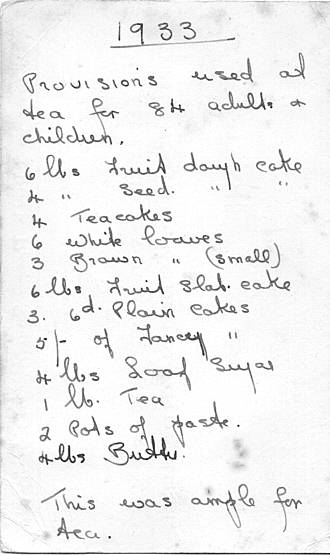 1933
Provisions used at
tea for 84 adults &
children.
6 lbs Fruit dough cake
4 " Seed. " "
4 Teacakes
6 white loaves
3 Brown " (small)
6 lbs Fruit slab. cake
3. 6d. Plain cakes
5/- of Fancy "
4 lbs Loaf Sugar
1 lb. Tea
2 Pots of paste.
4 lbs Butter.
This was ample for
tea.